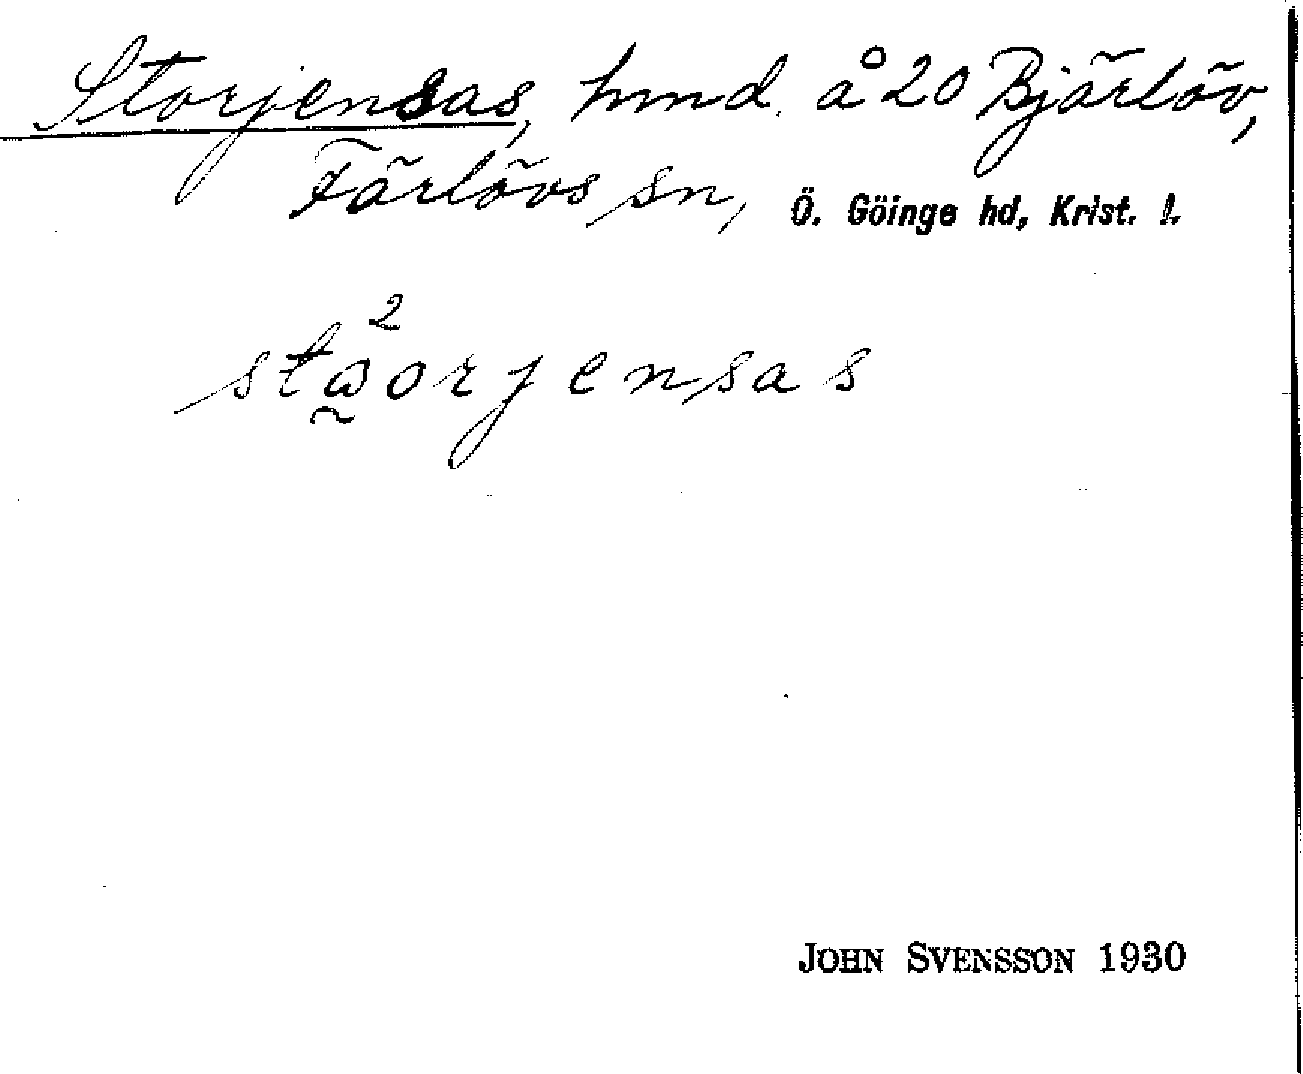 Storjensas, hmd. å 20 Bjärlöv,
Färlövs sn, Ö. Göinge hd, Krist. l.
2
stαorjensas
JOHN SVENSSON 1930